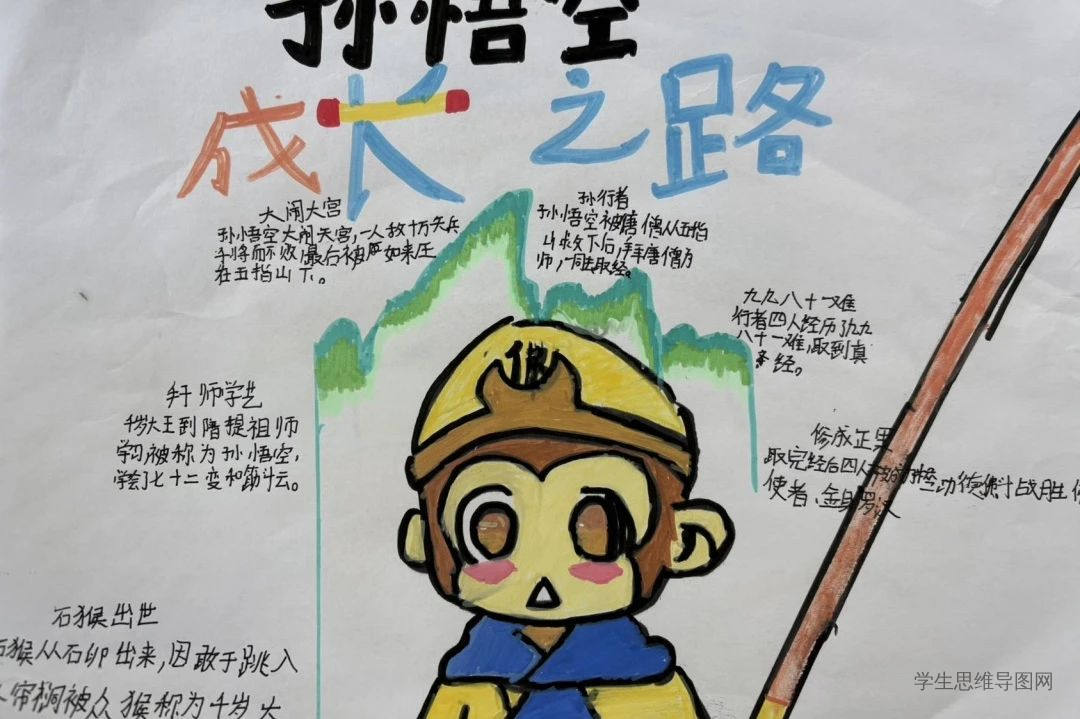 孙悟空
成长之路
大闹天宫
孙悟空大闹天宫,一人敌十万天兵
将而不败,最后被 如来压
在五指山下。
孙行者
孙悟空被唐僧从五指
山救下后,拜唐僧为
师,一同去取经。
九九八十一难
行者四人经历了九九
八十一难,取到真
经。
拜师学艺
千岁大王到 提祖师
学习,被称为孙悟空,
学会了七十二变和筋斗云。
修成正果
取完经后四人 功德佛 战胜
使者、金身罗汉
石猴出世
石猴从石卵出来,因敢于跳入
水帘洞被众猴称为千岁大
佛
学生思维导图网